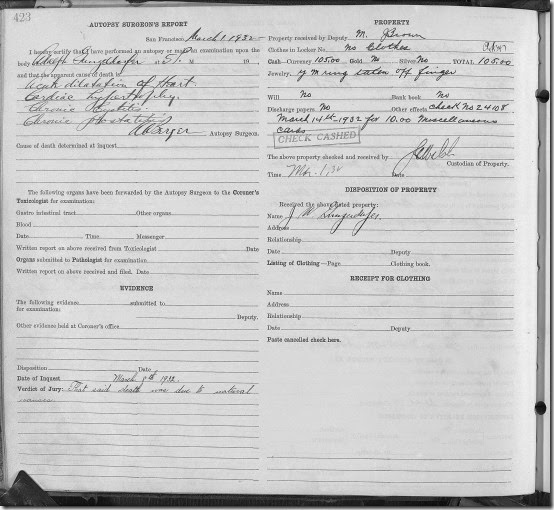 423
AUTOPSY SURGEON'S REPORT
San Francisco March 1 1932
I hereby certify that I have performed an autopsy or made an examination upon the
body at M 19
and that the apparent cause of death is
Acute dilatation of Heart.
Cardiac hypertrophy.
Chronic
Chronic prostatitis
Autopsy Surgeon.
Cause of death determined at inquest
The following organs have been forwarded by the Autopsy Surgeon to the Coroner's
Toxicologist for examination:
Gastro intestinal tract Other organs
Blood
Date Time Messenger
Written report on above received from Toxicologist Date
Organs submitted to Pathologist for examination
Written report on above received and filed. Date
EVIDENCE
The following evidence submitted to
for examination: Deputy.
Other evidence held at Coroner's office
Disposition Date
Date of Inquest March 8th 1932.
Verdict of Jury: That said death was due to natural
causes
PROPERTY
Property received by Deputy M. Brown
Clothes in Locker No No Clothes
Cash—Currency 105.00 Gold No Silver No TOTAL 105.00
Jewelry, y m ring taken off finger
Will No Bank book No
Discharge papers No Other effects Check No 24108
March 14th 1932 for 10.00 Miscellaneous
cards
CHECK CASHED
The above property checked and received by
Custodian of Property.
Time Date
DISPOSITION OF PROPERTY
Received the above listed property:
Name J
Address
Relationship
Date Deputy
Listing of Clothing—Page Clothing book.
RECEIPT FOR CLOTHING
Name
Address
Relationship
Date Deputy
Paste cancelled check here.